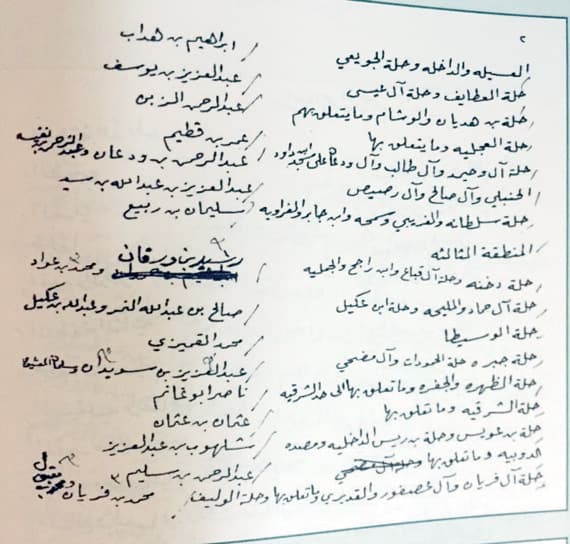 ٢
العسيله والداخله وحلة الجويعي / ابراهيم بن هداب
حلة العطايف وحلة آل عيسى / عبدالعزيز بن يوسف
حلة بن هديان والوشام وما يتعلق بهم / عبدالرحمن الزبن
حلة العجليه وما يتعلق بها / عمر بن قطيم
حلة آل وحمر وآل طالب وآل ودعان على / عبدالرحمن بن ودعان وعبدالرحمن بن نفيسه
الحنبلي وآل صالح وآل رصيص / عبدالعزيز بن عبدالله بن سيد
حلة سلطانه والغريبي وسمحه وابن جابر والفراويه / سليمان بن ربيع
المنطقة الثالثه
حلة دخنه وحلة آل قباع وابن راجح والجمليه / رشيد بن ورقان ومحمد بن عواد
حلة آل حماد والمليحه وحلة ابن عكيل / صالح بن عبدالله النمر وعبدالله بن عكيل
حلة الوسيطا / محمد القميزي
حلة جبره حلة الحمودات وآل مضحي / عبدالعزيز بن سويدان
حلة الظهره والجفره وما تعلق بها الى حد الشرقيه / ناصر ابو غانم
حلة الشرقيه وما تعلق بها / عثمان بن عثمان
حلة بن عويس وحلة بن ريس الداخليه ومصده / شلهوب بن عبدالعزيز
حلة وما يتعلق بها / عبدالرحمن بن سليم ٣
حلة آل فريان وآل عصفور والقديري وما تعلق بها وحلة الوليف / محمد بن فريان